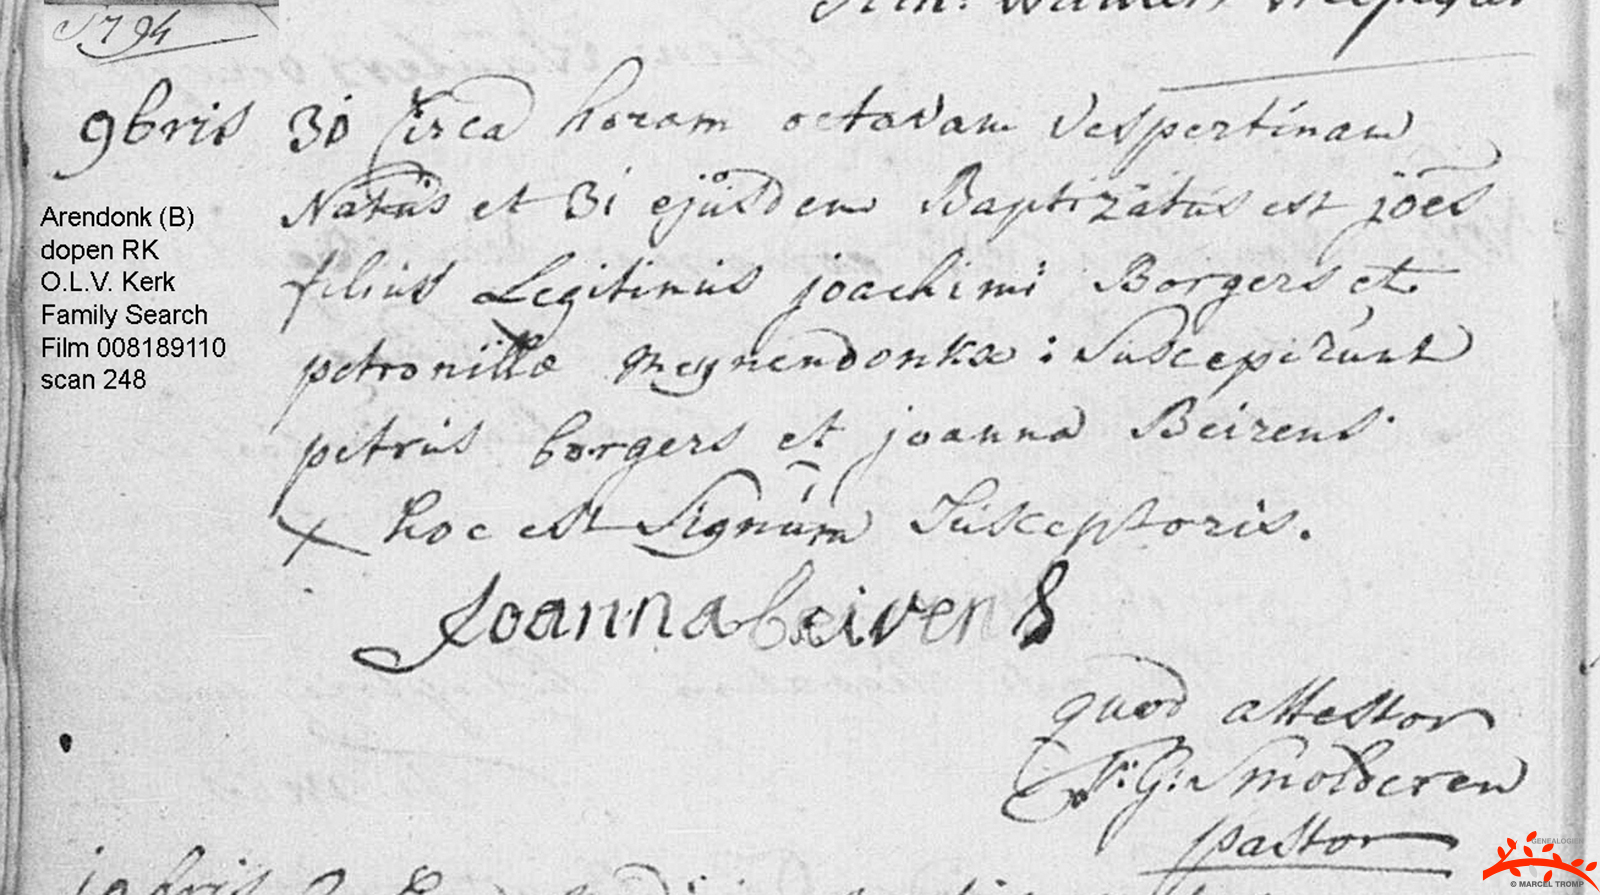 1794
9bris 30 Circa horam octavam Vespertinam
Natus et 31 ejusdem Baptizatus est joës
filius Legitimus joachimi Borgers et
petronillæ Meynendonkx : Susceperunt
petrus borgers et joanna Beirens.
x hoc est Signum Susceptoris.
Joanna beirens
quod attestor
F: G: Smolderen
pastor
Arendonk (B)
dopen RK
O.L.V. Kerk
Family Search
Film 008189110
scan 248
© MARCEL TROMP